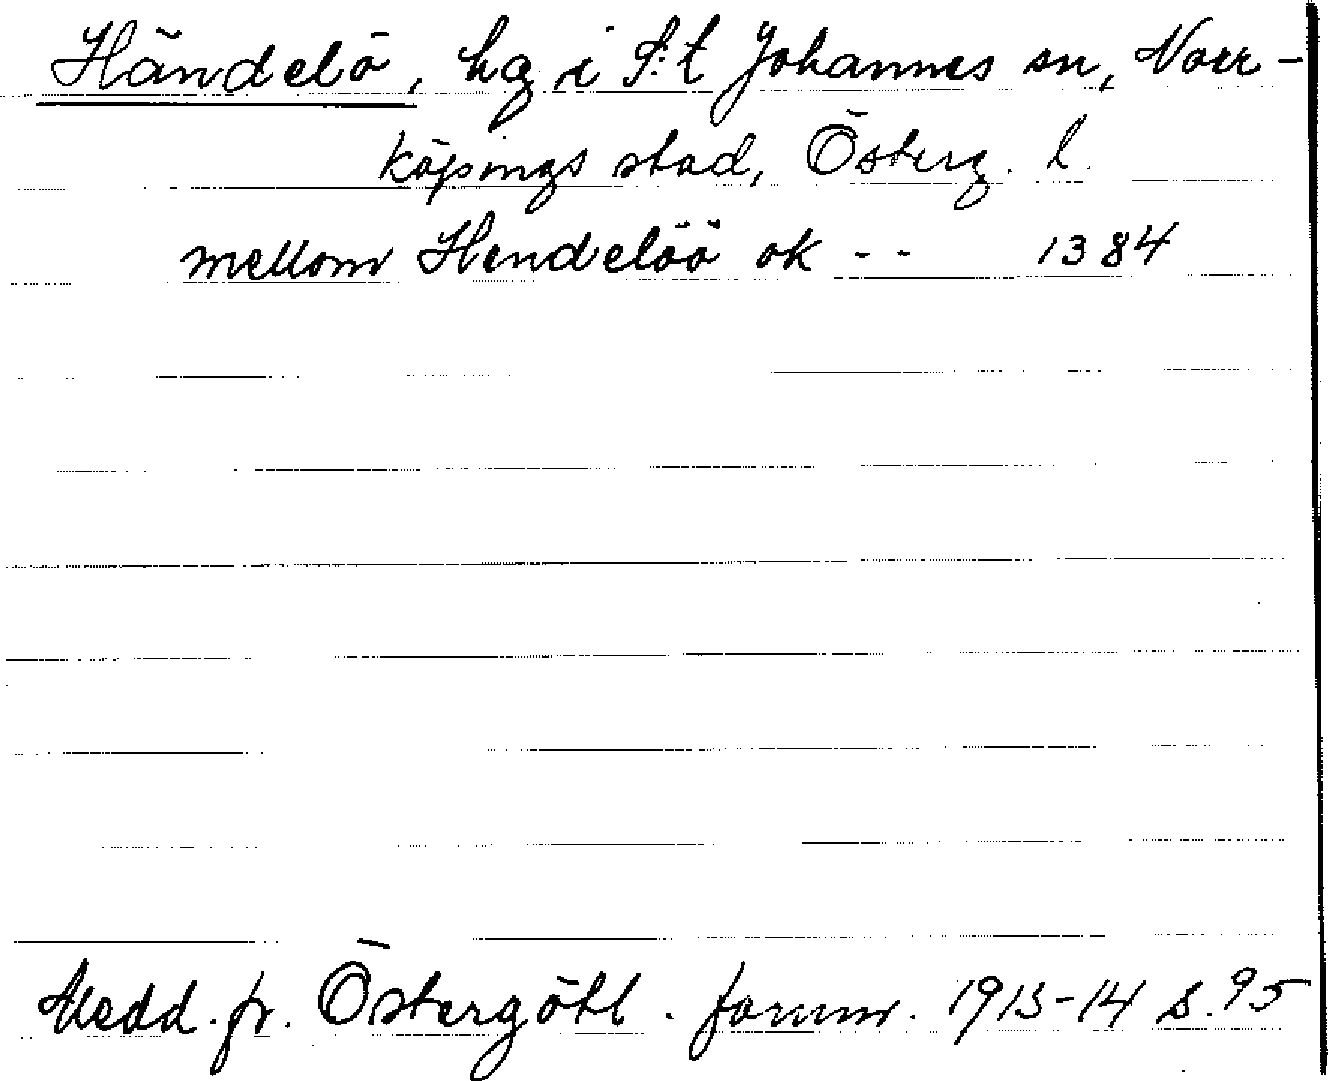 Händelö, hg i S:t Johannes sn, Norr-
köpings stad, Österg. l.
mellom Hendelöö ok - - 1384
Medd. fr. Östergötl. fornm. 1913-14 s. 95